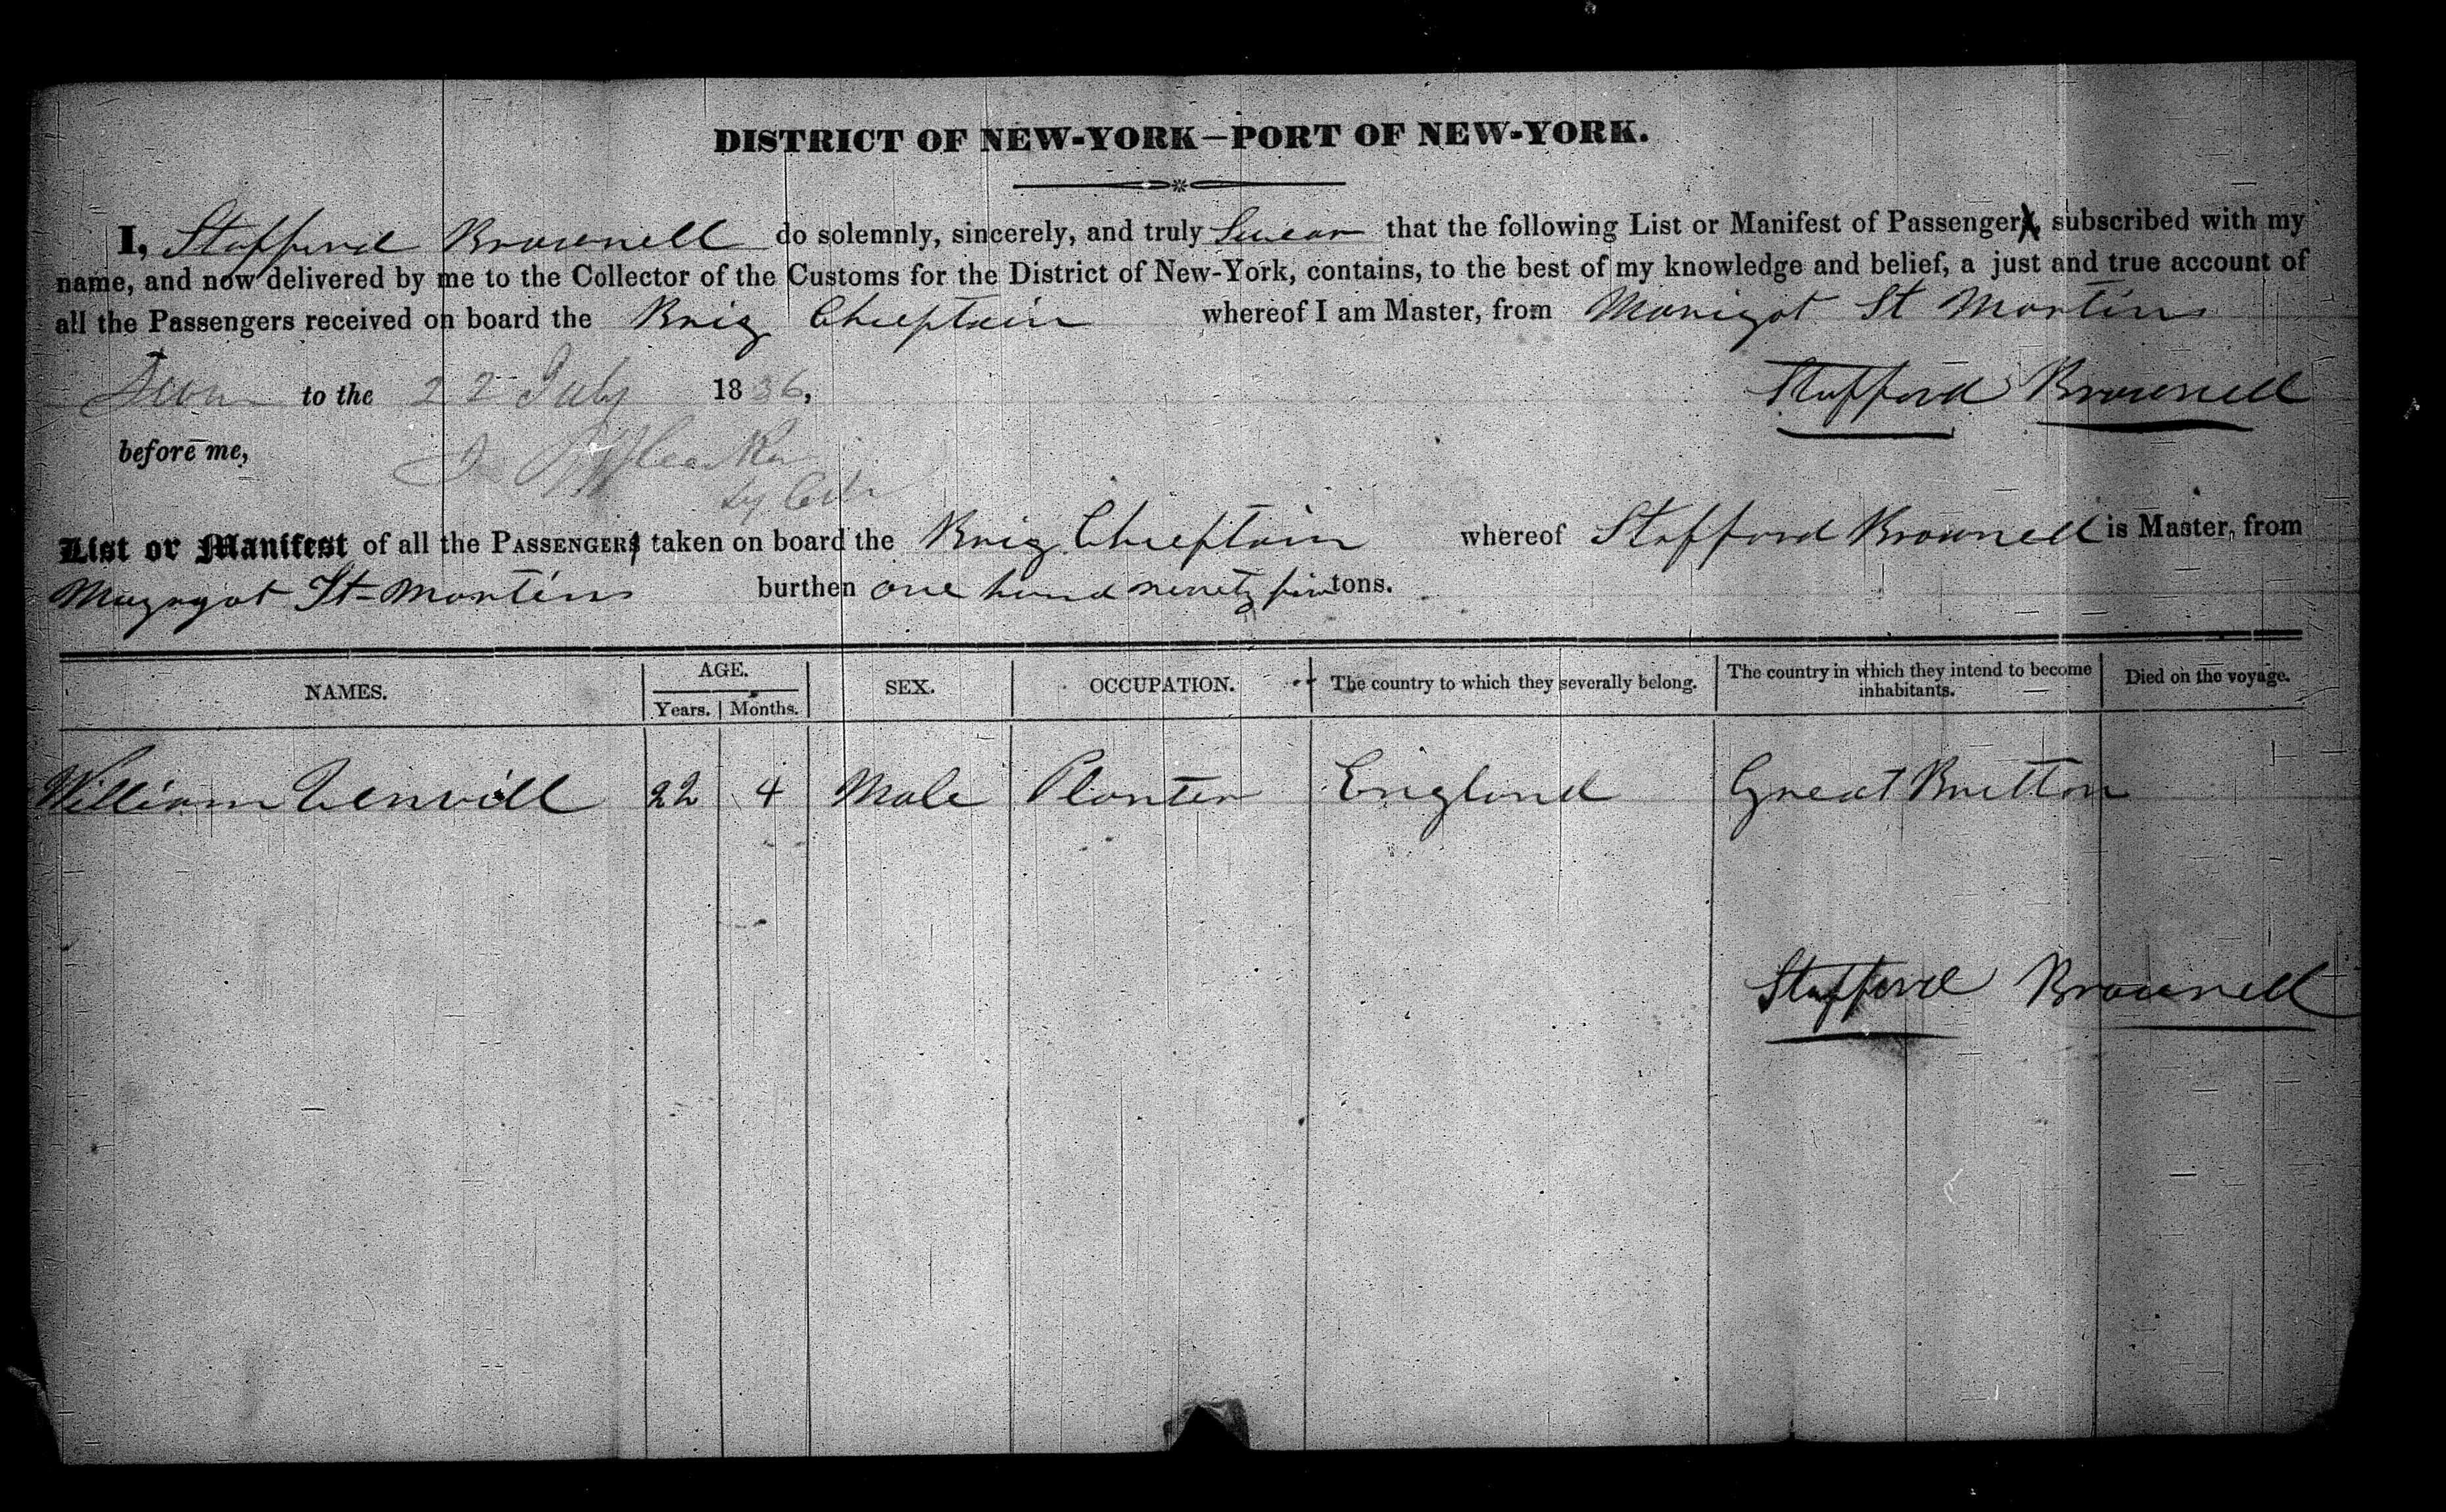 DISTRICT OF NEW-YORK—PORT OF NEW-YORK.
I, Stafford Brownell do solemnly, sincerely, and truly Swear that the following List or Manifest of Passenger, subscribed with my
name, and now delivered by me to the Collector of the Customs for the District of New-York, contains, to the best of my knowledge and belief, a just and true account of
all the Passengers received on board the Brig Chieptain whereof I am Master, from Marigot St Martins
to the 22 July 1836, Stafford Brownell
before me,
List or Manifest of all the PASSENGERS taken on board the Brig Chieftain whereof Stafford Brownell is Master, from
St-Martins burthen one hund ninety tons.
NAMES. AGE. Years. Months. SEX. OCCUPATION. The country to which they severally belong. The country in which they intend to become inhabitants. Died on the voyage.
William 22 4 Male Planter England Great Britton
Stafford Brownell